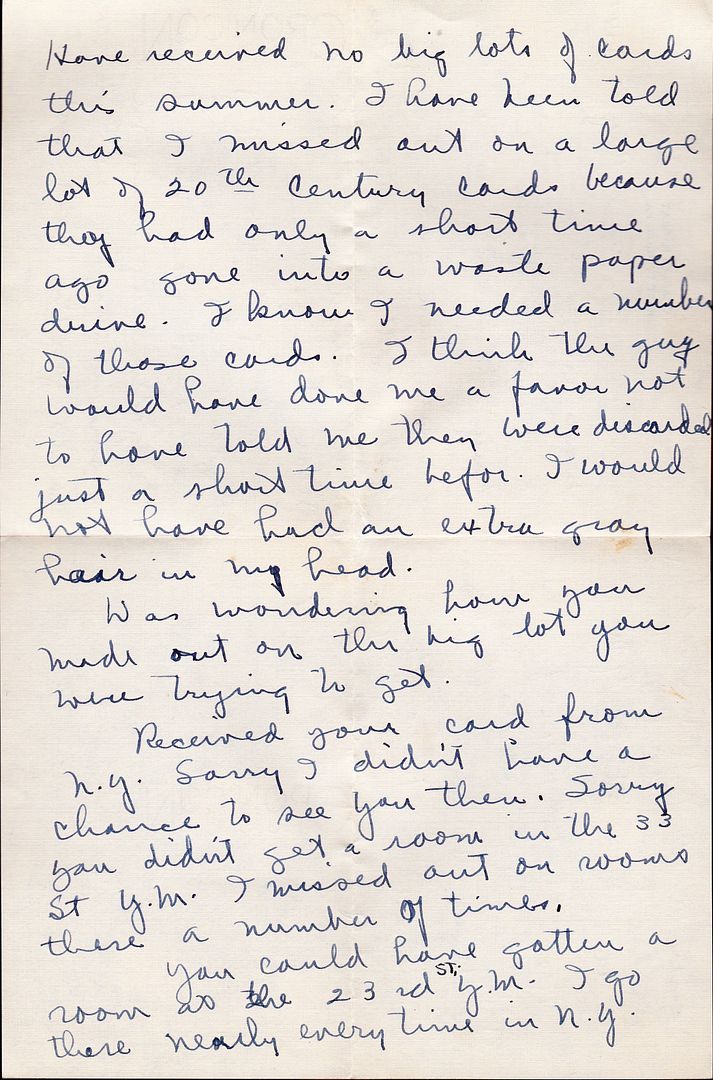 Have received no big lots of cards
this summer. I have been told
that I missed out on a large
lot of 20th Century cards because
they had only a short time
ago gone into a waste paper
drive. I know I needed a number
of those cards. I think the guy
would have done me a favor not
to have told me they were discarded
just a short time befor. I would
not have had an extra gray
hair in my head.
Was wondering how you
made out on the big lot you
were trying to get.
Received your card from
N.Y. Sorry I didn't have a
chance to see you then. Sorry
you didn't get a room in the 33
St Y.M. I missed out on rooms
there a number of times.
You could have gotten a
room at the 23rd ST. Y.M. I go
there nearly every time in N.Y.